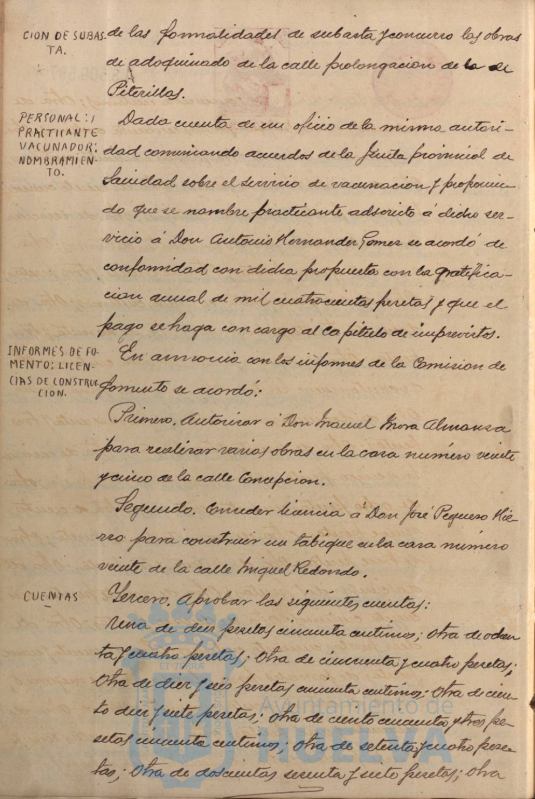 CION DE SUBAS-
TA.
de las formalidades de subasta y concurso las obras
de adoquinado de la calle prolongacion de la de
Piterillas.
PERSONAL: 1
PRACTICANTE
VACUNADOR:
NOMBRAMIEN-
TO.
Dada cuenta de un oficio de la misma autori-
dad comunicando acuerdos de la Junta provincial de
Sanidad sobre el servicio de vacunacion y proponien-
do que se nombre practicante adscrito á dicho ser-
vicio á Don Antonio Hernandez Gomez se acordó de
conformidad con dicha propuesta con la gratifica-
cion anual de mil cuatrocientas pesetas y que el
pago se haga con cargo al capitulo de imprevistos.
INFORMES DE FO-
MENTO: LICEN-
CIAS DE CONSTRUC-
CION.
En armonia con los informes de la Comision de
fomento se acordó:
Primero. Autorizar á Don Manuel Mora Almansa
para realizar varias obras en la casa número veinte
y cinco de la calle Concepcion.
Segundo. Conceder licencia á Don José Peguero Hie-
rro para construir un tabique en la casa número
veinte de la calle Miguel Redondo.
CUENTAS
Tercero. Aprobar las siguientes cuentas:
Una de diez pesetas cincuenta centimos; Otra de ochen-
ta y cuatro pesetas; Otra de cincuenta y cuatro pesetas;
Otra de diez y seis pesetas cincuenta centimos; Otra de cien-
to diez y siete pesetas; Otra de ciento cincuenta y tres pe-
setas cincuenta centimos; Otra de setenta y cuatro pese-
tas; Otra de doscientas sesenta y siete pesetas; Otra
Ayuntamiento de
HUELVA